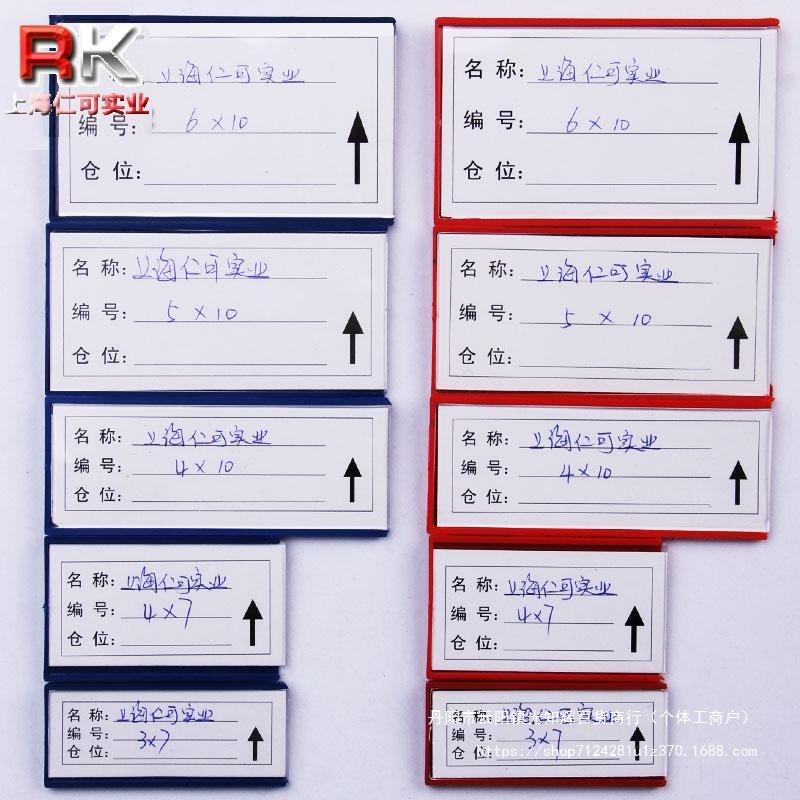 RK
上海仁可实业
上海仁可实业
编 号: 6×10
仓 位:
名 称: 上海仁可实业
编 号: 6×10
仓 位:
名 称: 上海仁可实业
编 号: 5×10
仓 位:
名 称: 上海仁可实业
编 号: 5×10
仓 位:
名 称: 上海仁可实业
编 号: 4×10
仓 位:
名 称: 上海仁可实业
编 号: 4×10
仓 位:
名 称: 上海仁可实业
编 号: 4×7
仓 位:
名 称: 上海仁可实业
编 号: 4×7
仓 位:
名 称: 上海仁可实业
编 号: 3×7
仓 位:
名 称: 上海仁可实业
编 号: 3×7
仓 位:
丹阳市 百货商行（个体工商户）
https://shop7124281u1z370.1688.com